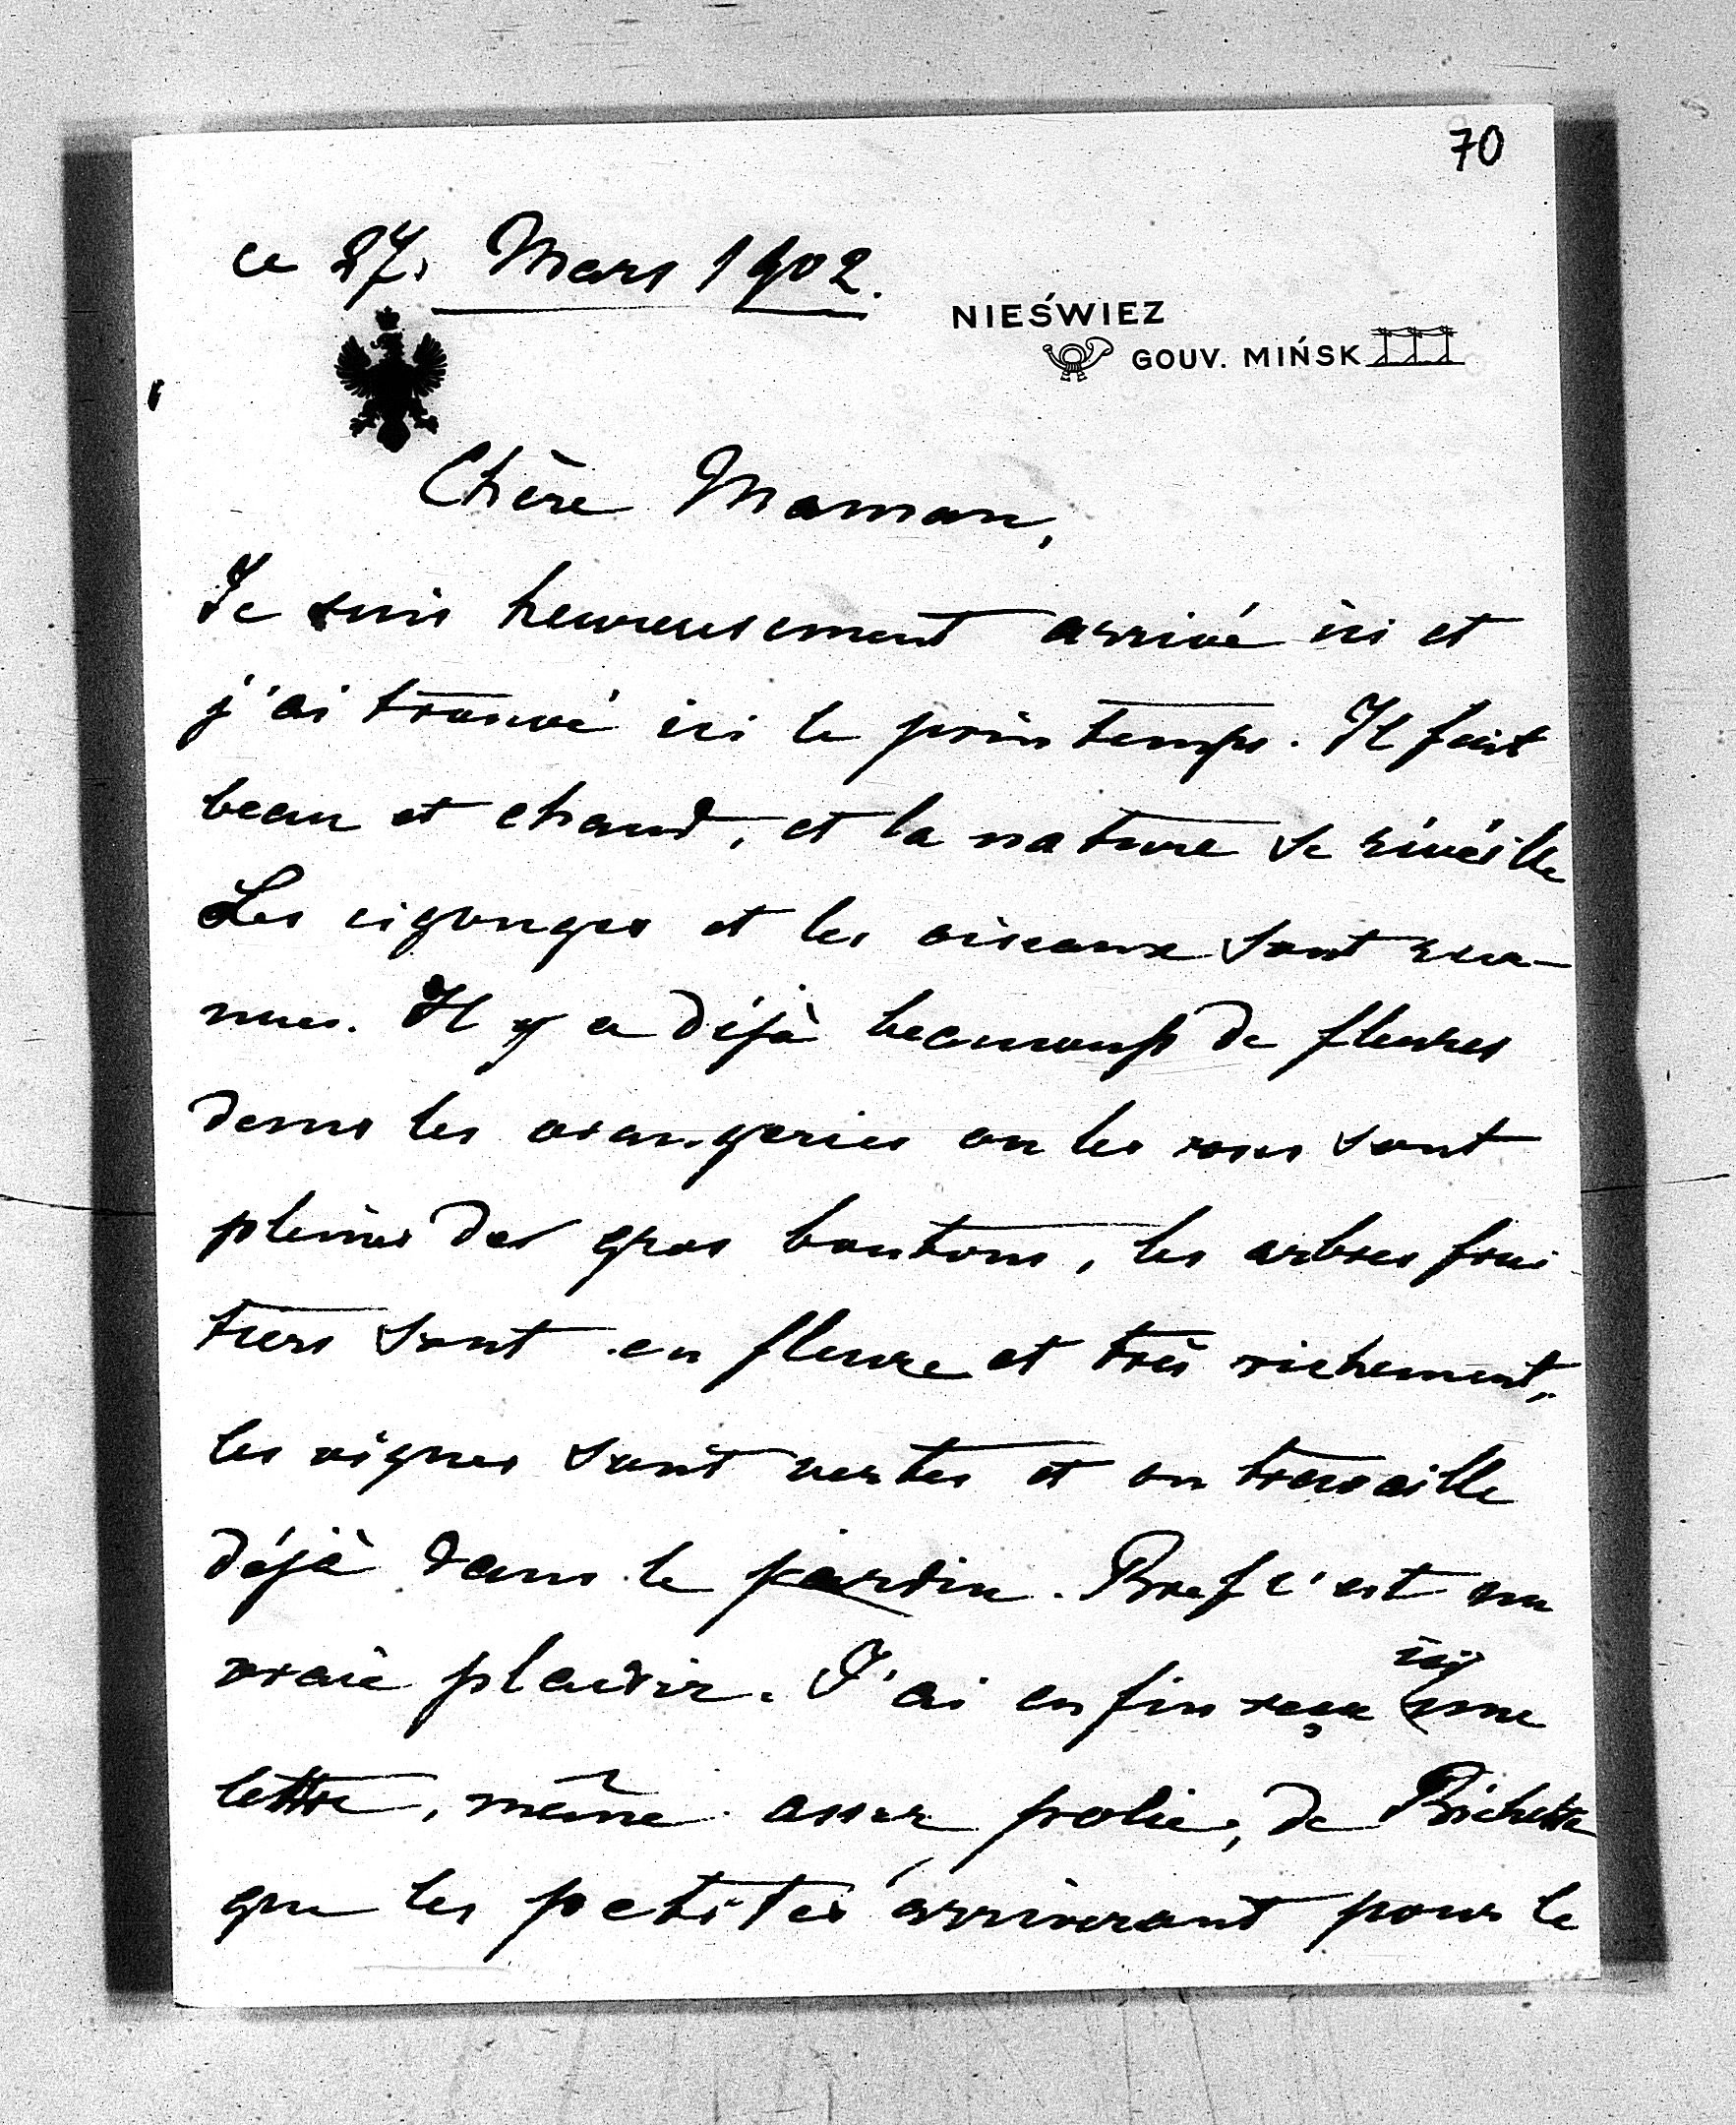 70
ce 27. Mars 1902.
NIEŚWIEZ
GOUV. MIŃSK
Chère Maman,
Je suis heureusement arrivé ici et
j'ai trouvé ici le printemps. Il fait
beau et chaud, et la nature se réveille
Les cigognes et les oiseaux sont reve-
nues. Il y a déjà beaucoup de fleures
dans les orangeries ou les roses sont
pleines des gros boutons, les arbres frui
tiers sont en fleure et très richement,
les vignes sont vertes et on travaille
déjà dans le jardin. Bref c'est un
vraie plaisir. J'ai enfin reçu ici une
lettre, même assez polie, de Bichette
que les petites arriveront pour le